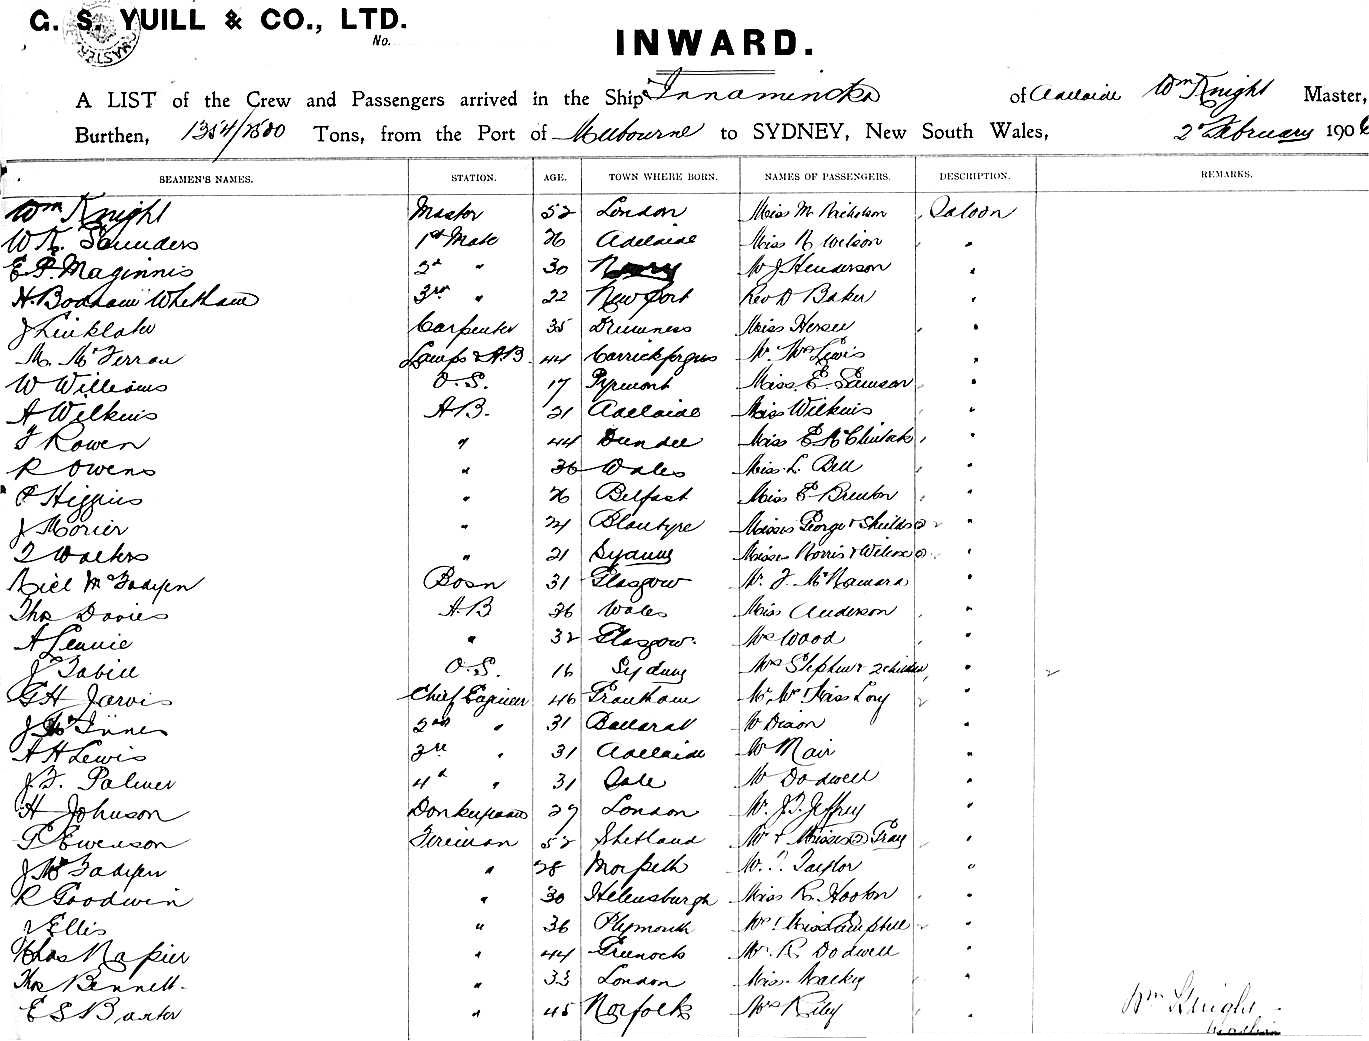 G. S. YUILL & CO., LTD.
No.
INWARD.
A LIST of the Crew and Passengers arrived in the Ship Innamincka of Adelaide Wm Knight Master,
Burthen, 1354/2500 Tons, from the Port of Melbourne to SYDNEY, New South Wales, 2 February 1906
SEAMEN'S NAMES. STATION. AGE. TOWN WHERE BORN. NAMES OF PASSENGERS. DESCRIPTION. REMARKS.
Wm Knight Master 52 London Miss M Nicholson Saloon
W R. Saunders 1st Mate 26 Adelaide Miss R Wilson "
E P. Maginnis 2d " 30 Mr J Henderson "
H. Boahaw Whetham 3rd " 22 Newport Rev D Baker "
J Linklater Carpenter 35 Miss "
M. McFerran Lamps & AB 44 Carrickfergus Mr Mrs Lewis "
W Williams O.S. 17 Pyrmont Miss E Samson "
A Wilkins AB. 21 Adelaide Miss Wilkins "
F Rowen " 44 Dundee Miss E "
R Owens " 36 Wales Miss L. Bell "
P Higgins " 26 Belfast Miss E Brenton "
J Morier " 24 Blantyre Misses George & Shields 2 "
T Walters " 21 Sydney Misses Norris & Wilcox 2 "
Niel McFadyen Bosn 31 Glasgow Mr. F. McNamara "
Thos Davies A.B 36 Wales Miss Anderson "
A Lennie " 32 Glasgow. Mrs Wood "
J Tabill O.S. 16 Sydney Mrs Stephen & 2 children "
G H Jarvis Chief Engineer 46 Grantham Mr, Mrs & Miss Long "
J McInnes 2nd " 31 Ballarat Mr Dixon "
A H Lewis 3rd " 31 Adelaide Mr Mair "
J. F. Palmer 4th " 31 Sale Mr Dodwell "
H Johnson Donkeyman 29 London Mr. J. F. Jeffrey "
Ewenson Fireman 52 Shetland Mr & Misses (2) Gray "
J McFadyen " 28 Morpeth Mr. Taylor "
R Goodwin " 30 Helensburgh Miss R. Hooton "
J Ellis " 36 Plymouth Mrs & Miss Campbell "
Chas Napier " 44 Greenock Mr. R. Dodwell "
Thos Bennett. " 33 London Miss Mackey "
E S Baxter " 45 Norfolk Mrs Riley "
Wm Knight